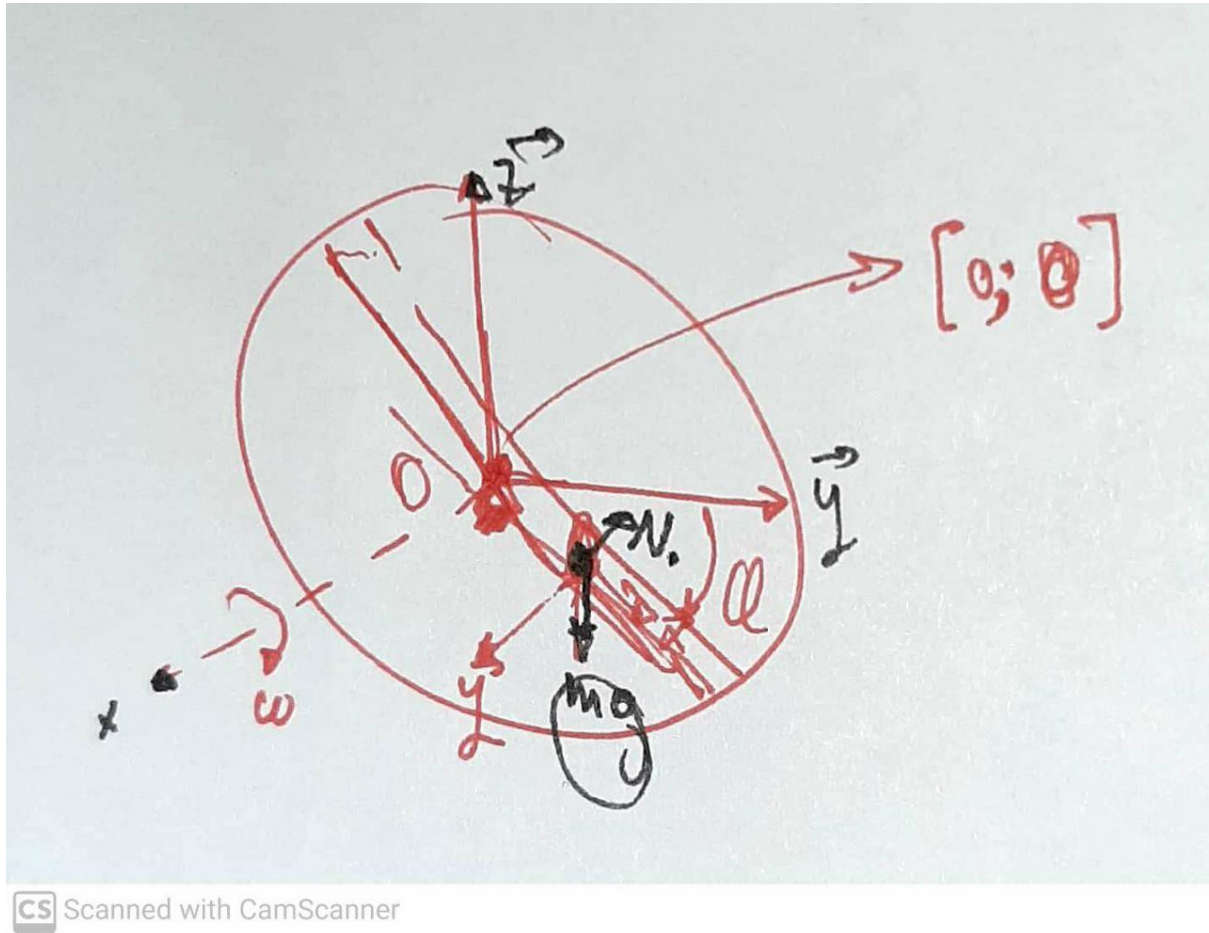 z
[0; 0]
0
y
N.
x
ω
y
mg
CS Scanned with CamScanner